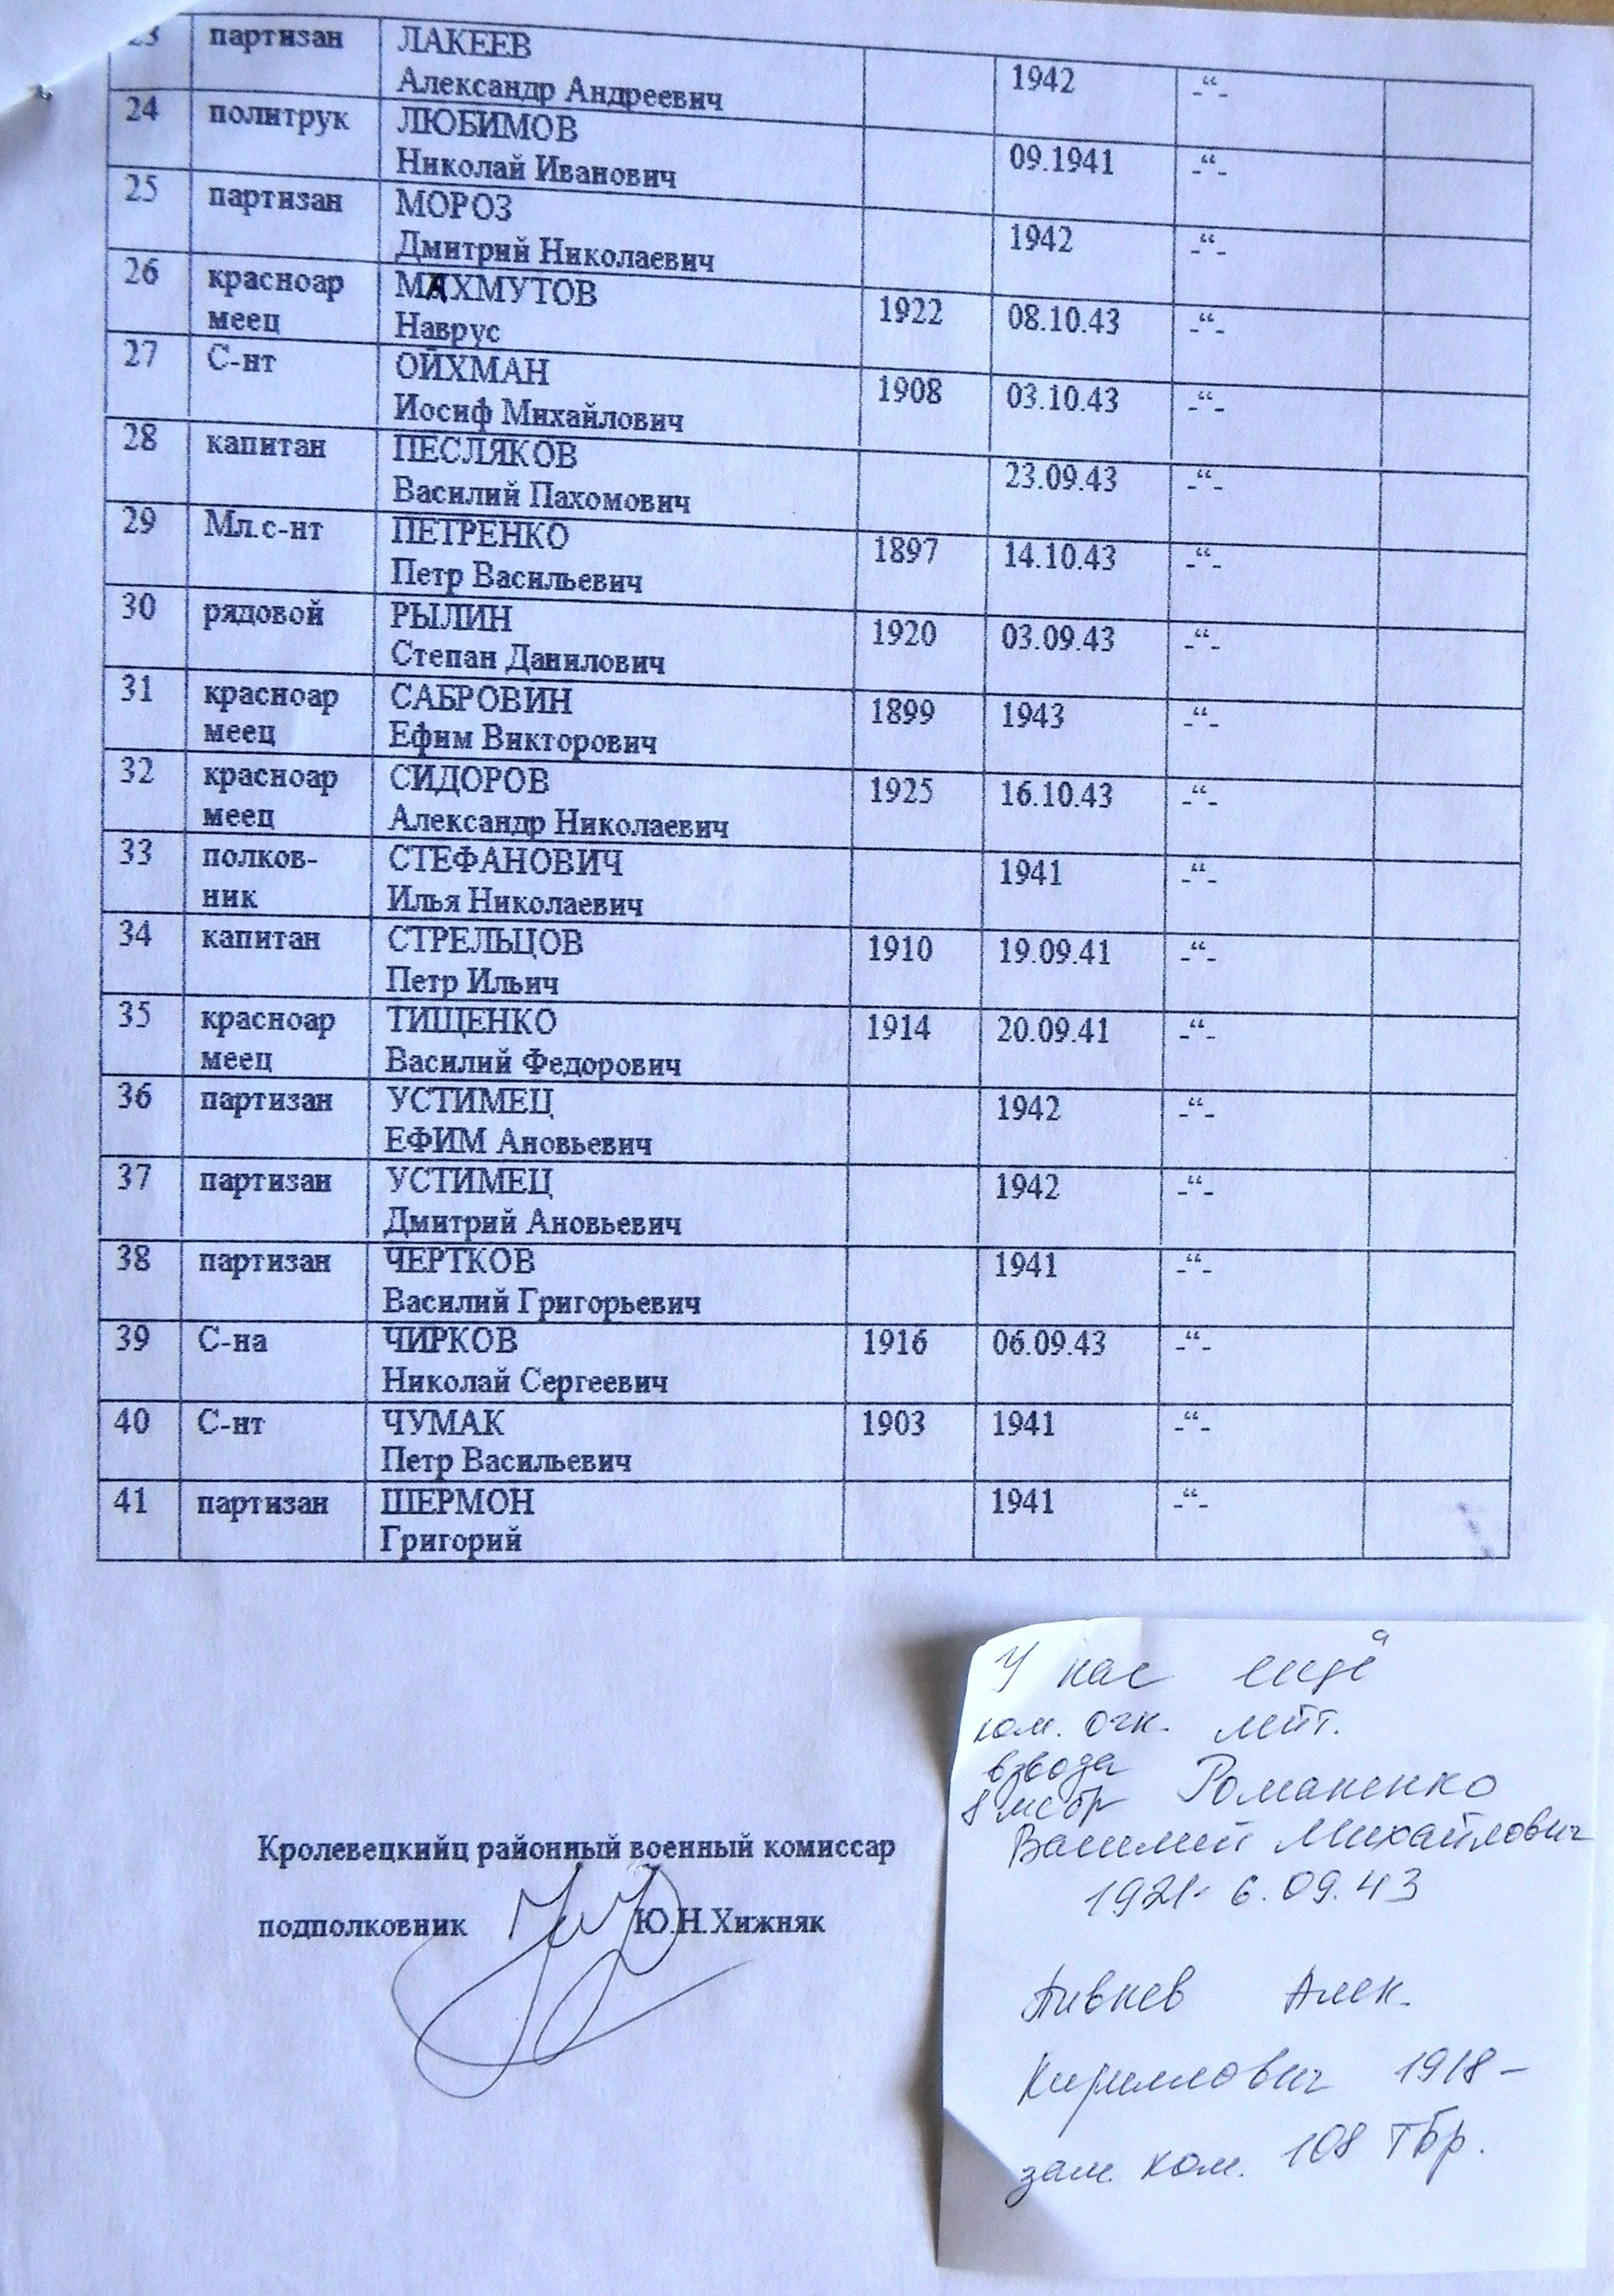 23 партизан ЛАКЕЕВ
Александр Андреевич 1942 -“-
24 политрук ЛЮБИМОВ
Николай Иванович 09.1941 -“-
25 партизан МОРОЗ
Дмитрий Николаевич 1942 -“-
26 красноар МАХМУТОВ
меец Наврус 1922 08.10.43 -“-
27 С-нт ОЙХМАН
Иосиф Михайлович 1908 03.10.43 -“-
28 капитан ПЕСЛЯКОВ
Василий Пахомович 23.09.43 -“-
29 Мл.с-нт ПЕТРЕНКО
Петр Васильевич 1897 14.10.43 -“-
30 рядовой РЫЛИН
Степан Данилович 1920 03.09.43 -“-
31 красноар САБРОВИН 1899 1943 -“-
меец Ефим Викторович
32 красноар СИДОРОВ 1925 16.10.43 -“-
меец Александр Николаевич
33 полков- СТЕФАНОВИЧ 1941 -“-
ник Илья Николаевич
34 капитан СТРЕЛЬЦОВ 1910 19.09.41 -“-
Петр Ильич
35 красноар ТИЩЕНКО 1914 20.09.41 -“-
меец Василий Федорович
36 партизан УСТИМЕЦ 1942 -“-
ЕФИМ Ановьевич
37 партизан УСТИМЕЦ 1942 -“-
Дмитрий Ановьевич
38 партизан ЧЕРТКОВ 1941 -“-
Василий Григорьевич
39 С-на ЧИРКОВ 1916 06.09.43 -“-
Николай Сергеевич
40 С-нт ЧУМАК 1903 1941 -“-
Петр Васильевич
41 партизан ШЕРМОН 1941 -“-
Григорий
Кролевецкийц районный военный комиссар
подполковник Ю.Н.Хижняк
У нас ещё
ком. огн. лейт.
взвода
8 мсбр Романенко
Василий Михайлович
1921- 6.09.43
Пивнев Алек.
Кириллович 1918-
зам. ком. 108 Тбр.